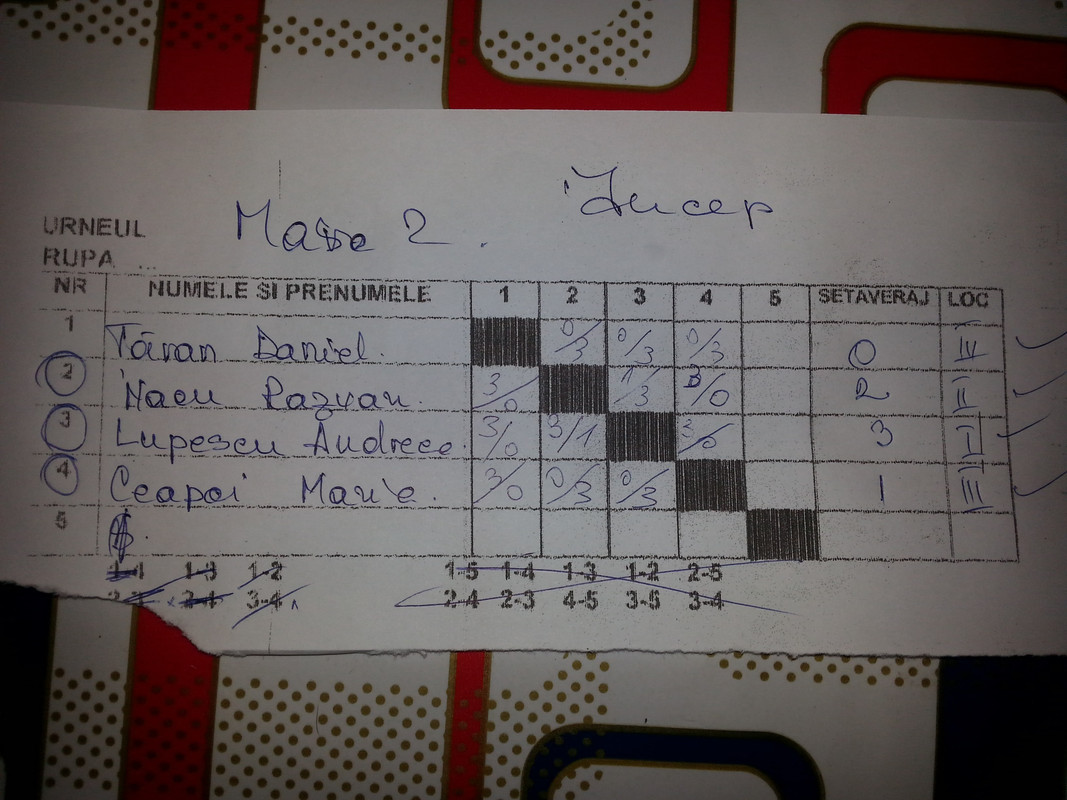 Masa 2. Încep
URNEUL
RUPA ...
NR NUMELE SI PRENUMELE 1 2 3 4 5 SETAVERAJ LOC
1 Tăran Daniel. 0/3 0/3 0/3 0 IV
2 Nacu Razvan. 3/0 1/3 3/0 2 II
3 Lupescu Andreea. 3/0 3/1 3/0 3 I
4 Ceapoi Marie. 3/0 0/3 0/3 1 III
5
1-3 1-2 1-5 1-4 1-3 1-2 2-5
2-4 3-4 2-4 2-3 4-5 3-5 3-4